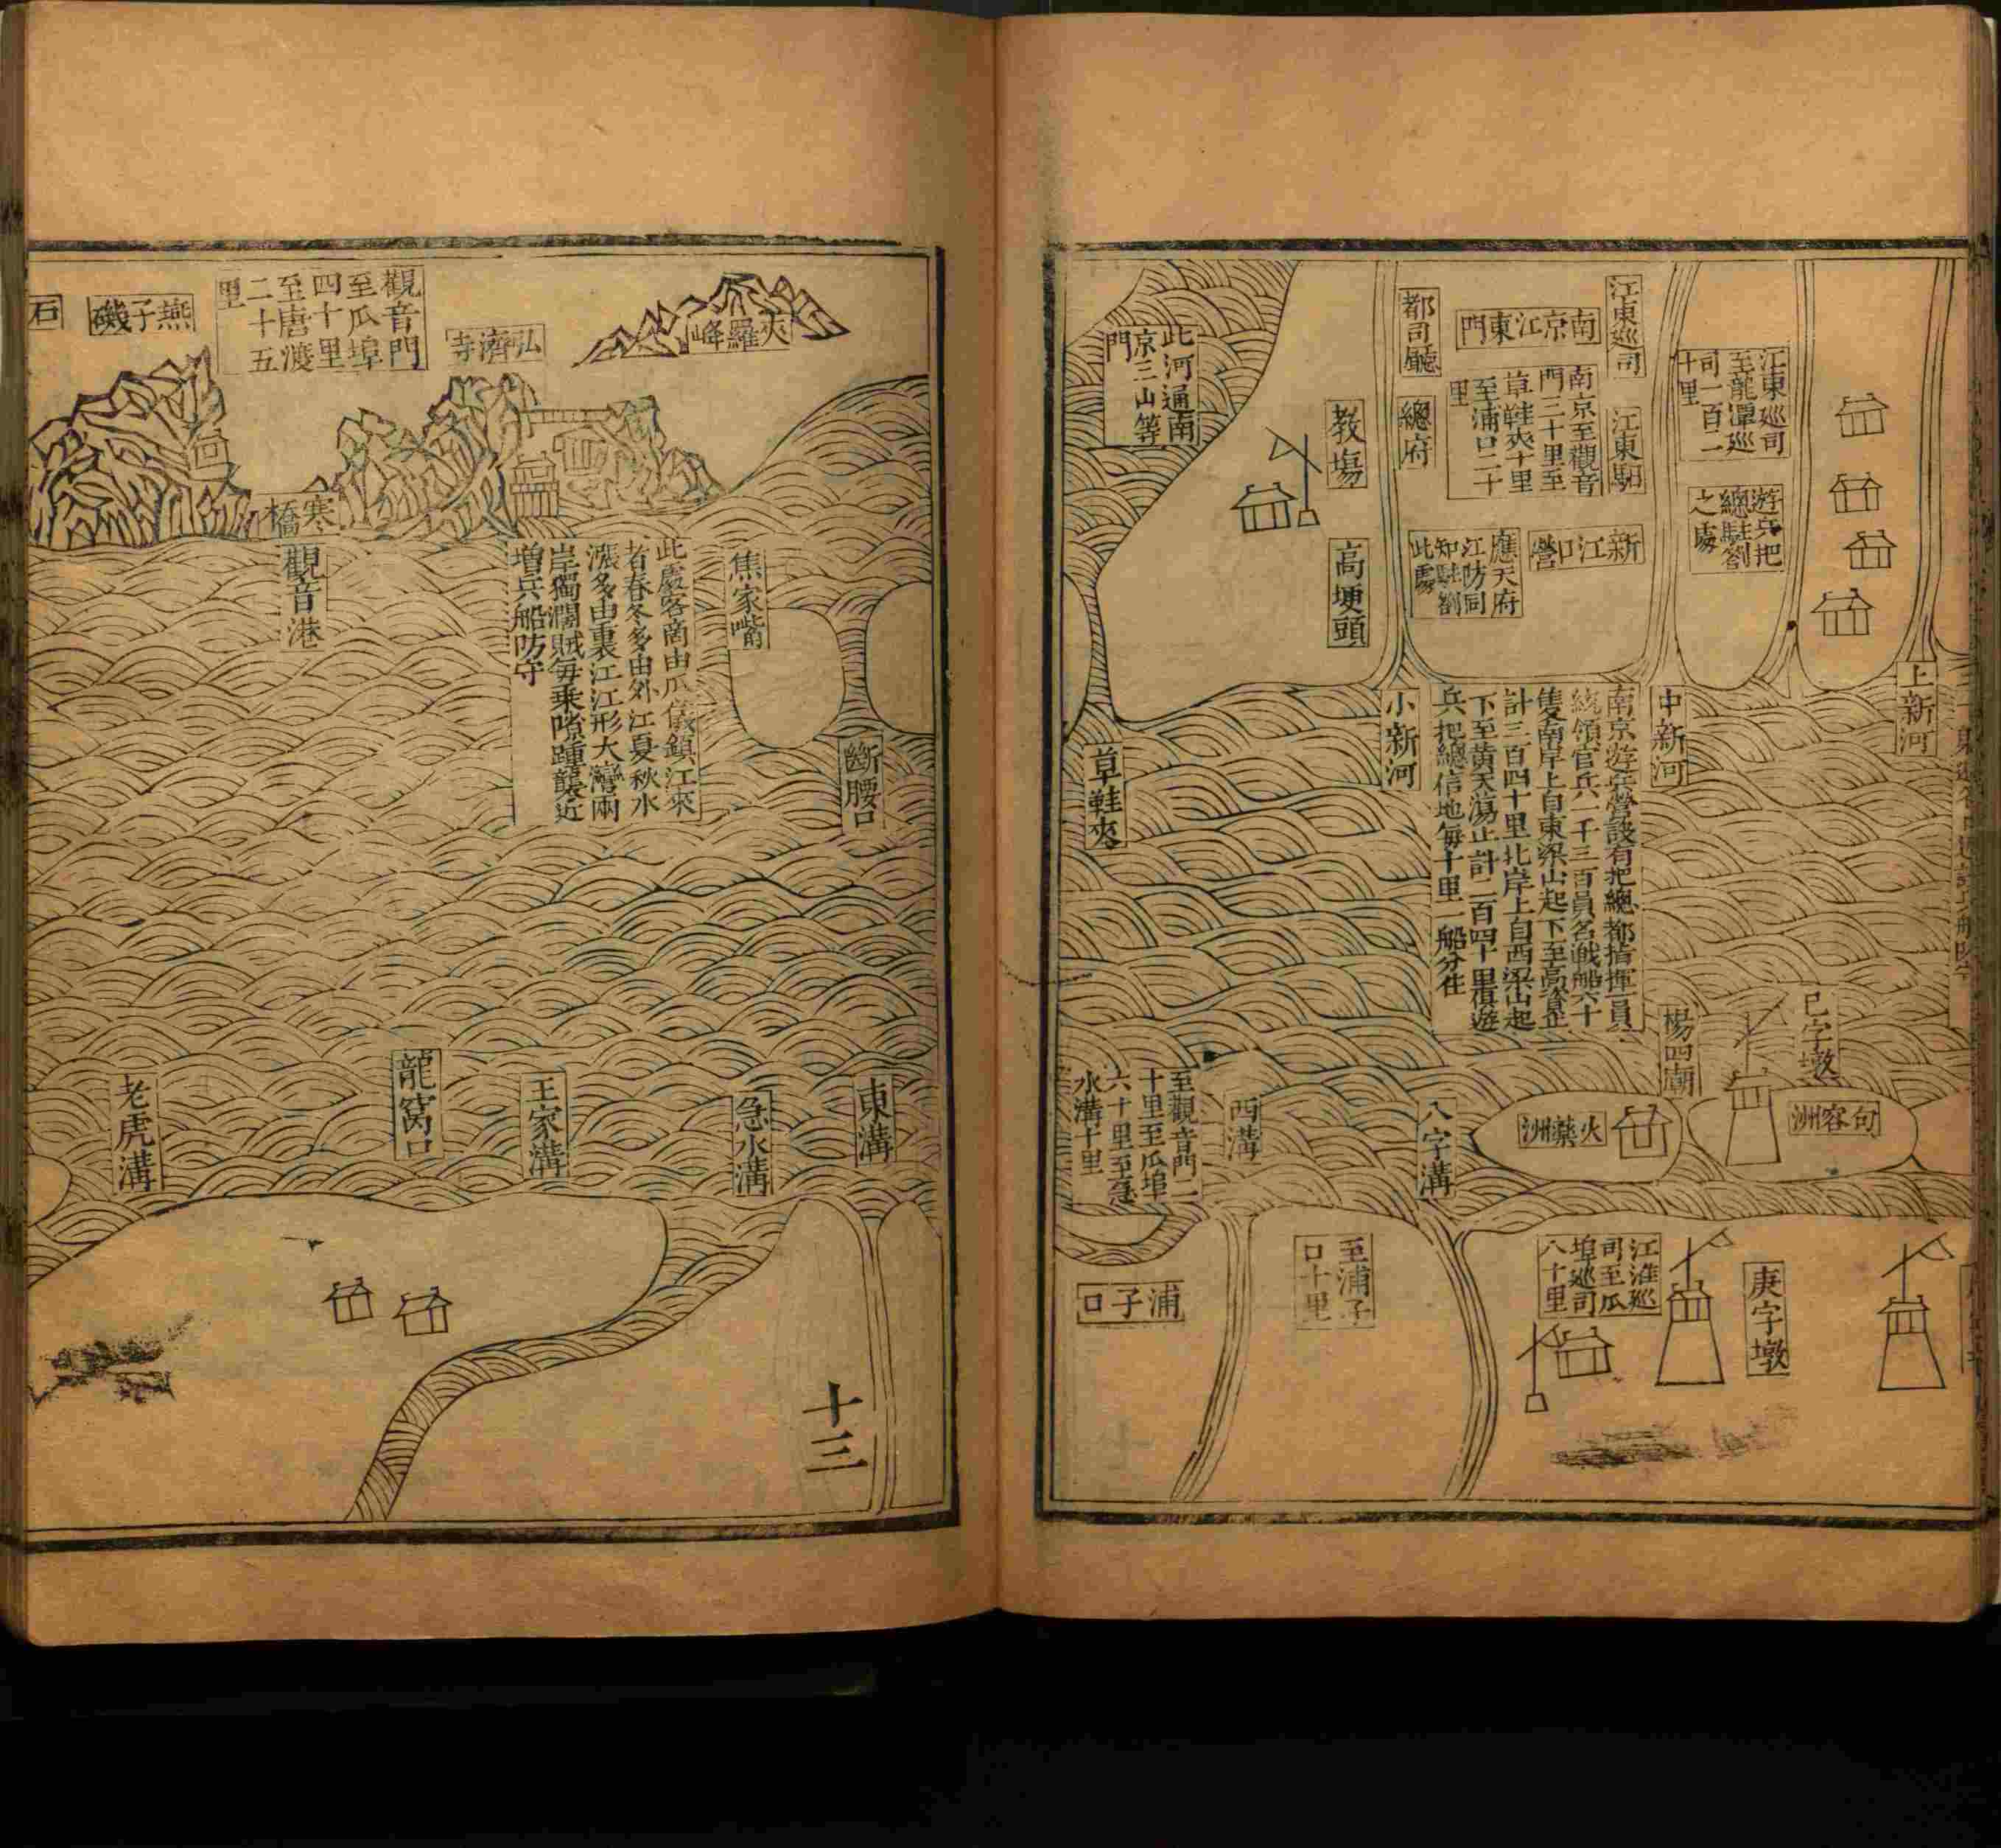 上新河
江東巡司
至龍潭巡
司一百二
十里
遊兵把
總駐劄
之處
中新河
江東巡司
江東馹
南京江東門
南京至觀音
門三十里至
草鞋夾十里
至浦口二十
里
新江口營
應天府
江防同
知駐劄
此處
都司廳
總府
教場
高埂頭
小新河
此河通南
京三山等
門
草鞋夾
南京遊兵營設有把總都指揮一員
統領官兵一千三百員名戰船六十
隻南岸上自東梁山起下至高資止
計三百四十里北岸上自西梁山起
下至黃天蕩止計二百四十里俱遊
兵把總信地每十里一船分住
楊四廟
巳字墩
句容洲
火藥洲
八字溝
西溝
至觀音門二
十里至瓜埠
六十里至急
水溝十里
庚字墩
江淮巡
司至瓜
埠巡司
八十里
至浦子
口十里
浦子口
夾羅峰
弘濟寺
觀音門
至瓜埠
四十里
至唐渡
二十五
里
燕子磯
石
寒橋
觀音港
焦家嘴
斷腰口
此處客商由瓜儀鎮江來
者春冬多由外江夏秋水
漲多由裏江江形大灣兩
岸獨濶賊每乘隙踵襲近
增兵船防守
東溝
急水溝
王家溝
龍窩口
老虎溝
十三